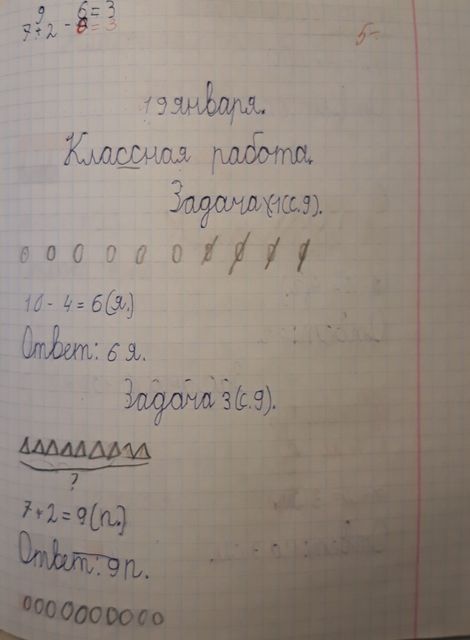 9 6 = 3
7 + 2 - 6 = 3
5-
19 января.
Классная работа.
Задача 1(с.9).
10 - 4 = 6(я.)
Ответ: 6 я.
Задача 3(с.9).
?
7 + 2 = 9(п.)
Ответ: 9 п.